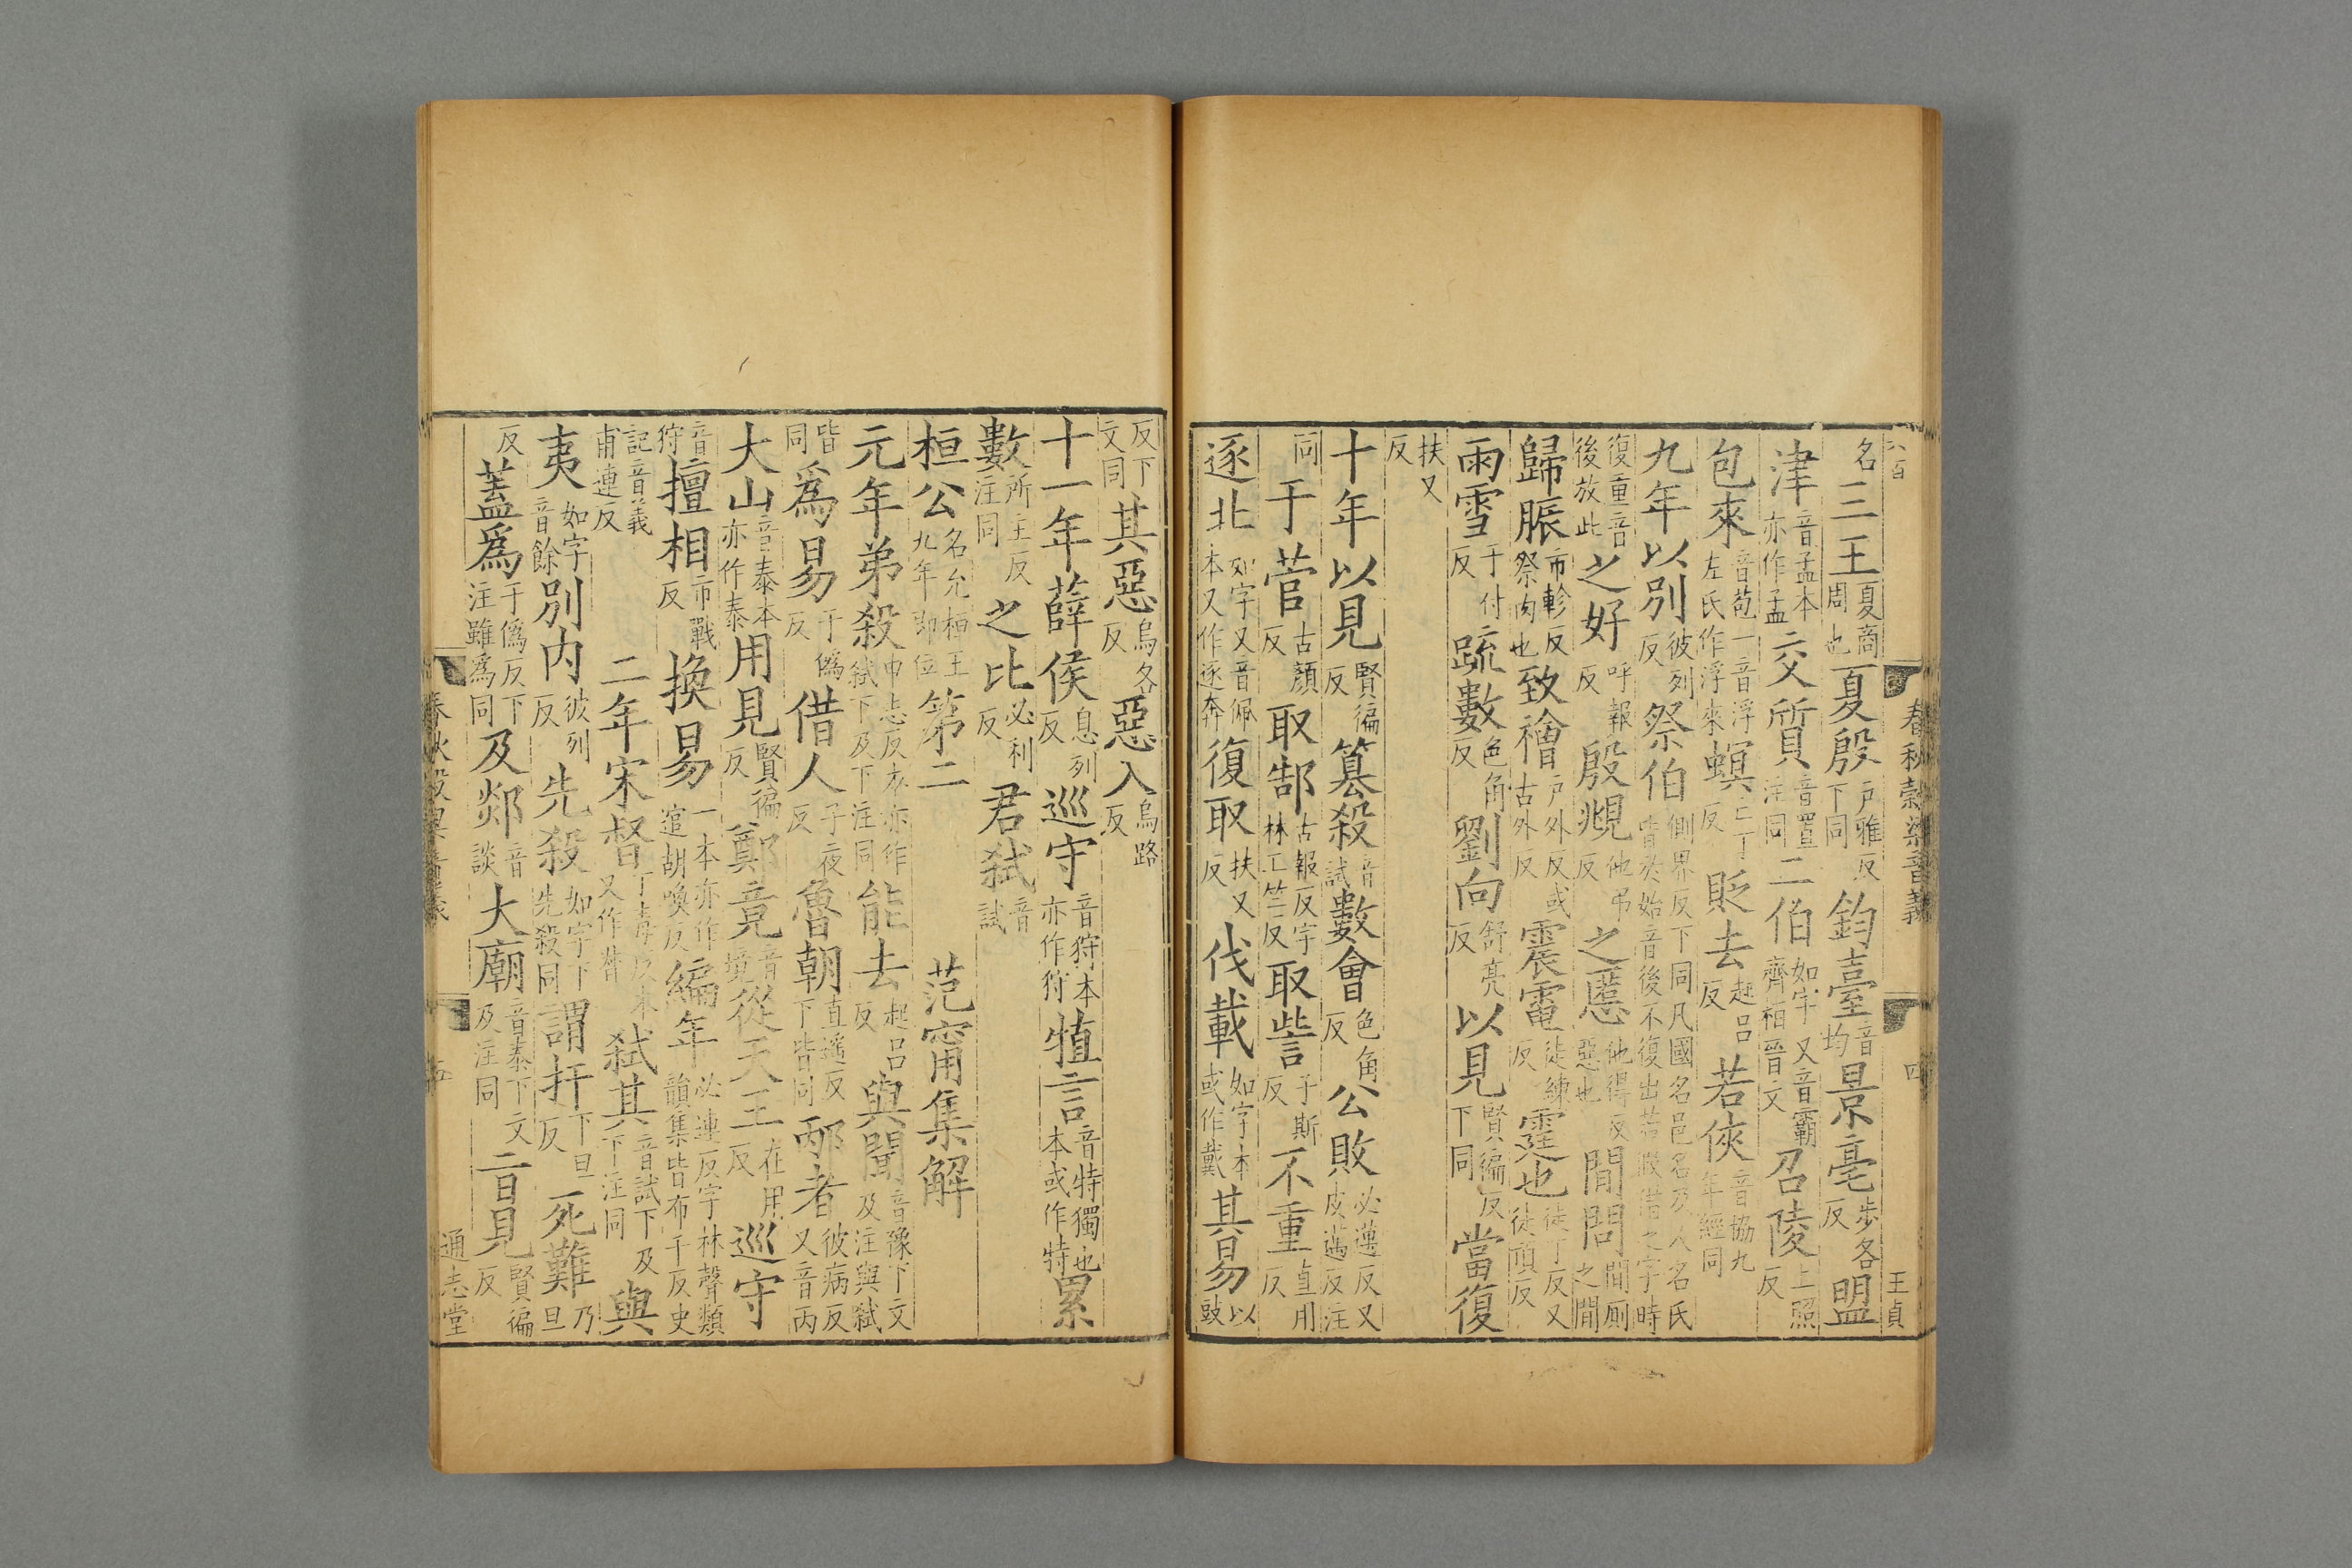 春秋穀梁音義 四 王貞
名三王夏商周也夏殷戶雅反下同鈞臺音均景亳步各反盟
津音孟本亦作孟交質音置注同二伯如字又音霸齊桓晉文召陵上照反
包來音苞一音浮左氏作浮來螟亡丁反貶去起呂反若俠音協九年經同
九年以別彼列反祭伯側界反下同凡國名邑名及人名氏皆於始音後不復出若假借之字時
復重音後放此之好呼報反殷覜他弔反之慝他得反惡也間問間厠之間
歸脤市軫反祭肉也致禬戶外反或古外反震電徒練反霆也徒丁反又徒頂反
雨雪于付反疏數色角反劉向舒亮反以見賢編反下同當復
扶又反
十年以見賢徧反篡殺音試數會色角反公敗必邁反又皮邁反注
同于菅古顏反取郜古報反字林工竺反取訾子斯反不重直用反
逐北如字又音佩本又作逐奔復取扶又反伐載如字本或作戴其易以豉
反下文同其惡烏各反惡入烏路反
十一年薛侯息列反巡守音狩本亦作狩犆言音特獨也本或作特累
數所主反注同之比必利反君弒音試
桓公名允桓王九年即位第二 范甯集解
元年弟殺申志反亦作弒下及下注同能去起呂反與聞音豫下文及注與弒
皆同為易于僞反借人子夜反魯朝直遙反下皆同邴者彼病反又音丙
大山音泰本亦作泰用見賢徧反鄭竟音境從天王在用反巡守
音狩擅相市戰反換易一本亦作逭胡喚反編年必連反字林聲類韻集皆布千反史
記音義甫連反二年宋督丁毒反本又作𧛔弒其音試下及下注同與
夷如字音餘別內彼列反先殺如字下先殺同謂扞下旦反死難乃旦
反蓋為于僞反下注雖為同及郯音談大廟音泰下文及注同言見賢徧反
春秋穀梁音義 五 通志堂